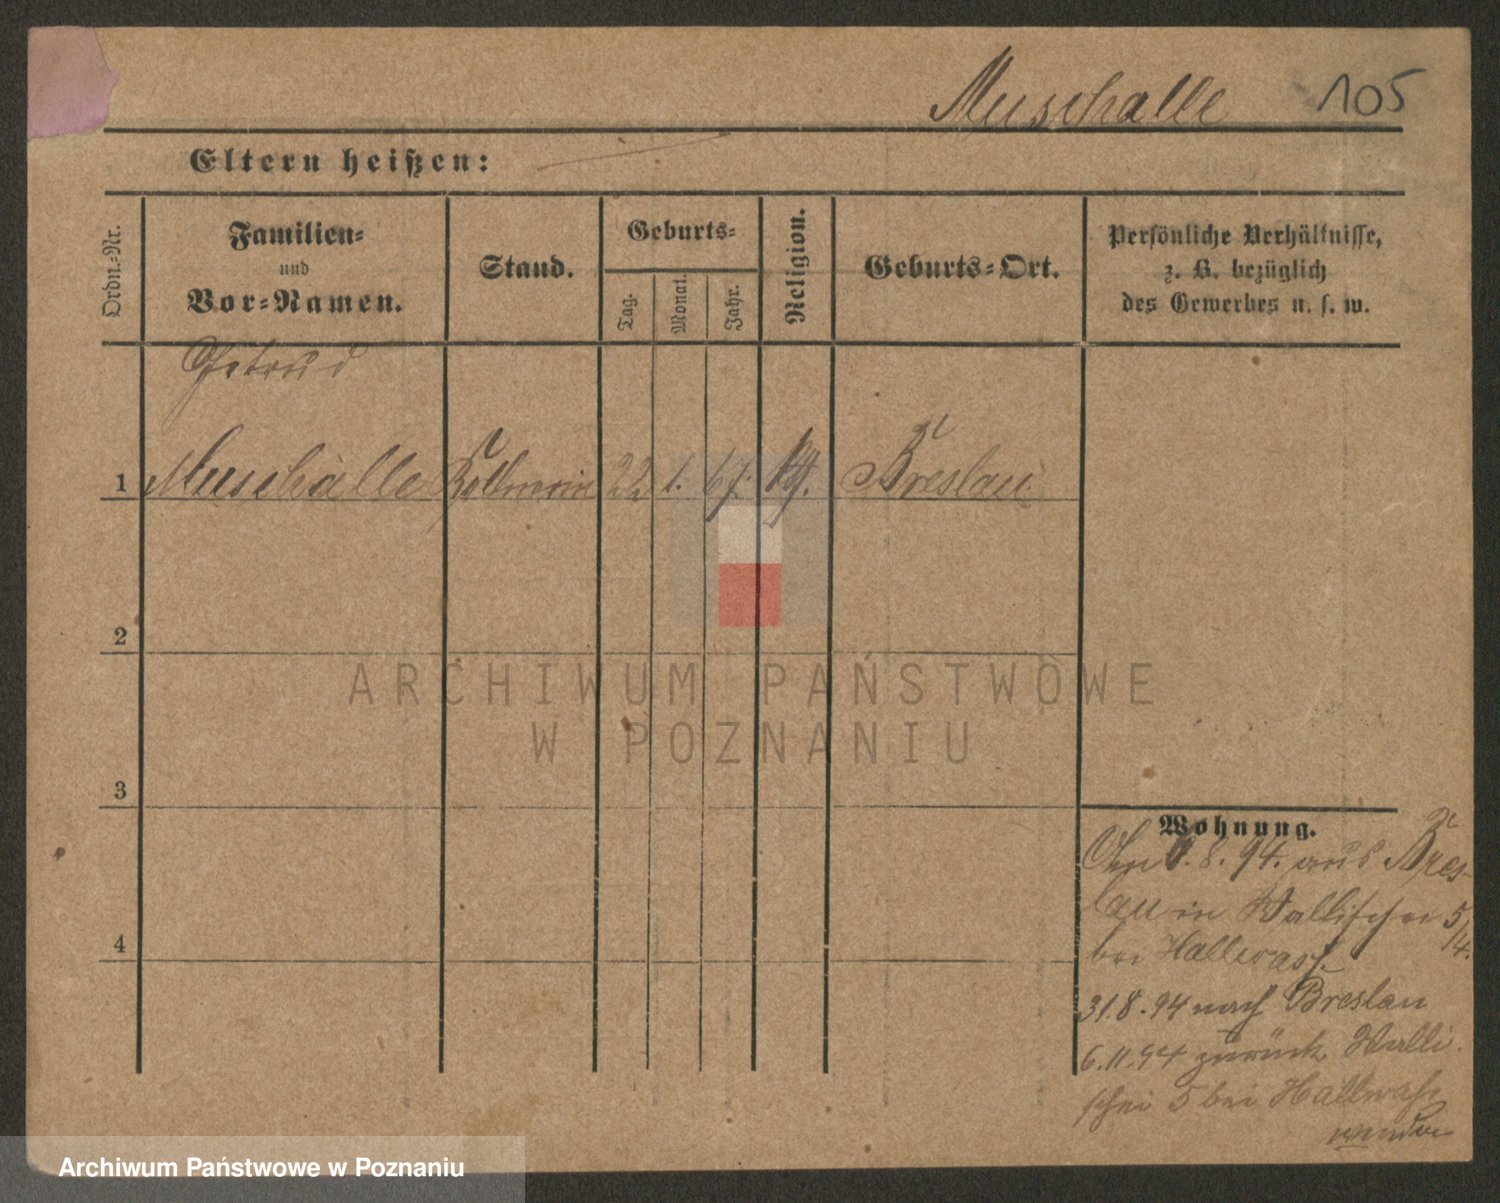 Muschalle 105
Eltern heißen:
Ordn.-Nr.
Familien-
und
Vor-Namen.
Stand.
Geburts-
Tag.
Monat.
Jahr.
Religion.
Geburts-Ort.
Persönliche Verhältnisse,
z. B. bezüglich
des Gewerbes u. s. w.
Getrud
1 Muschalle Kellnerin 22 1. 67. Breslau
2
3
4
Wohnung.
8. 94. aus Bres-
lau in Wallischei 5
bei Hallwass
31.8.94 nach Breslau
6.11.94 zurück Walli
schei 5 bei Hallwass
wenden
ARCHIWUM PAŃSTWOWE
W POZNANIU
Archiwum Państwowe w Poznaniu